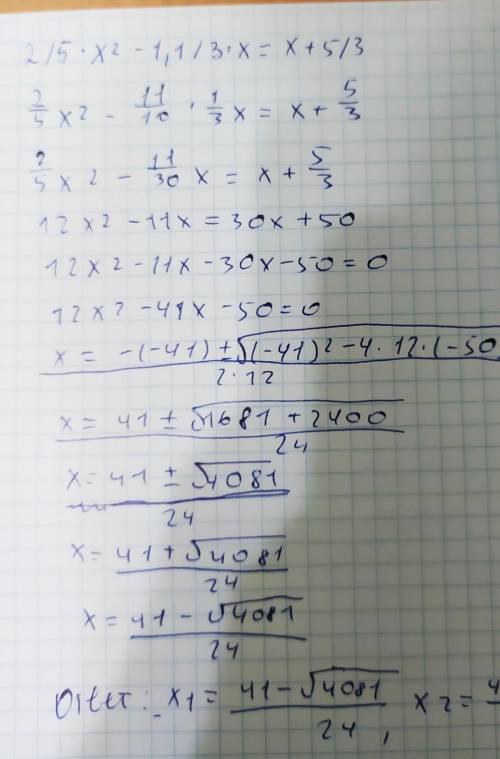 2/5 · x² - 1,1/3 · x = x + 5/3
2/5 x² - 11/10 · 1/3 x = x + 5/3
2/5 x² - 11/30 x = x + 5/3
12x² - 11x = 30x + 50
12x² - 11x - 30x - 50 = 0
12x² - 41x - 50 = 0
x = -(-41) ± √(-41)² - 4 · 12 · (-50
2 · 12
x = 41 ± √1681 + 2400
24
x = 41 ± √4081
24
x = 41 + √4081
24
x = 41 - √4081
24
Ответ: x1 = 41 - √4081 / 24, x2 = 4